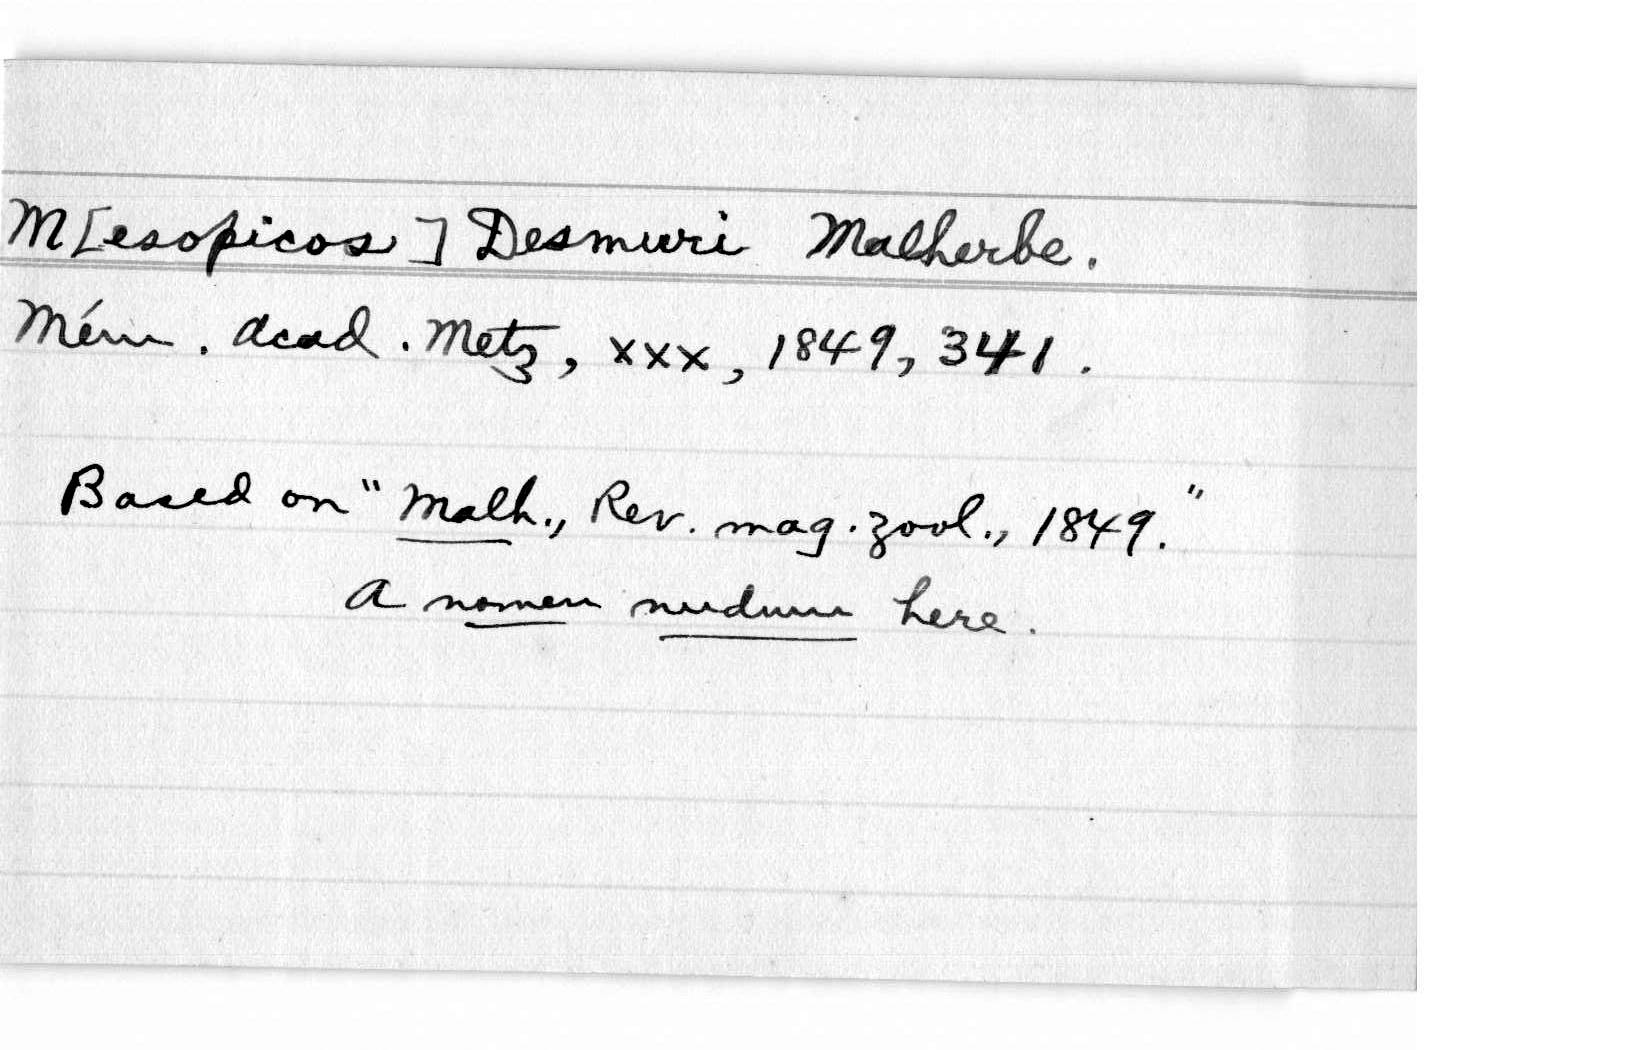 M[esopicos] Desmuri Malherbe.
Mém. Acad. Metz, xxx, 1849, 341.
Based on "Malh., Rev. mag. zool., 1849."
A nomen nudum here.